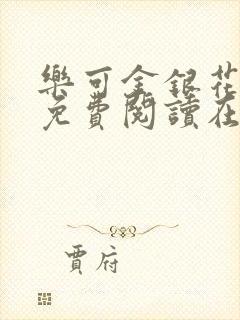 樂可金銀花
免費閱讀在
賈府